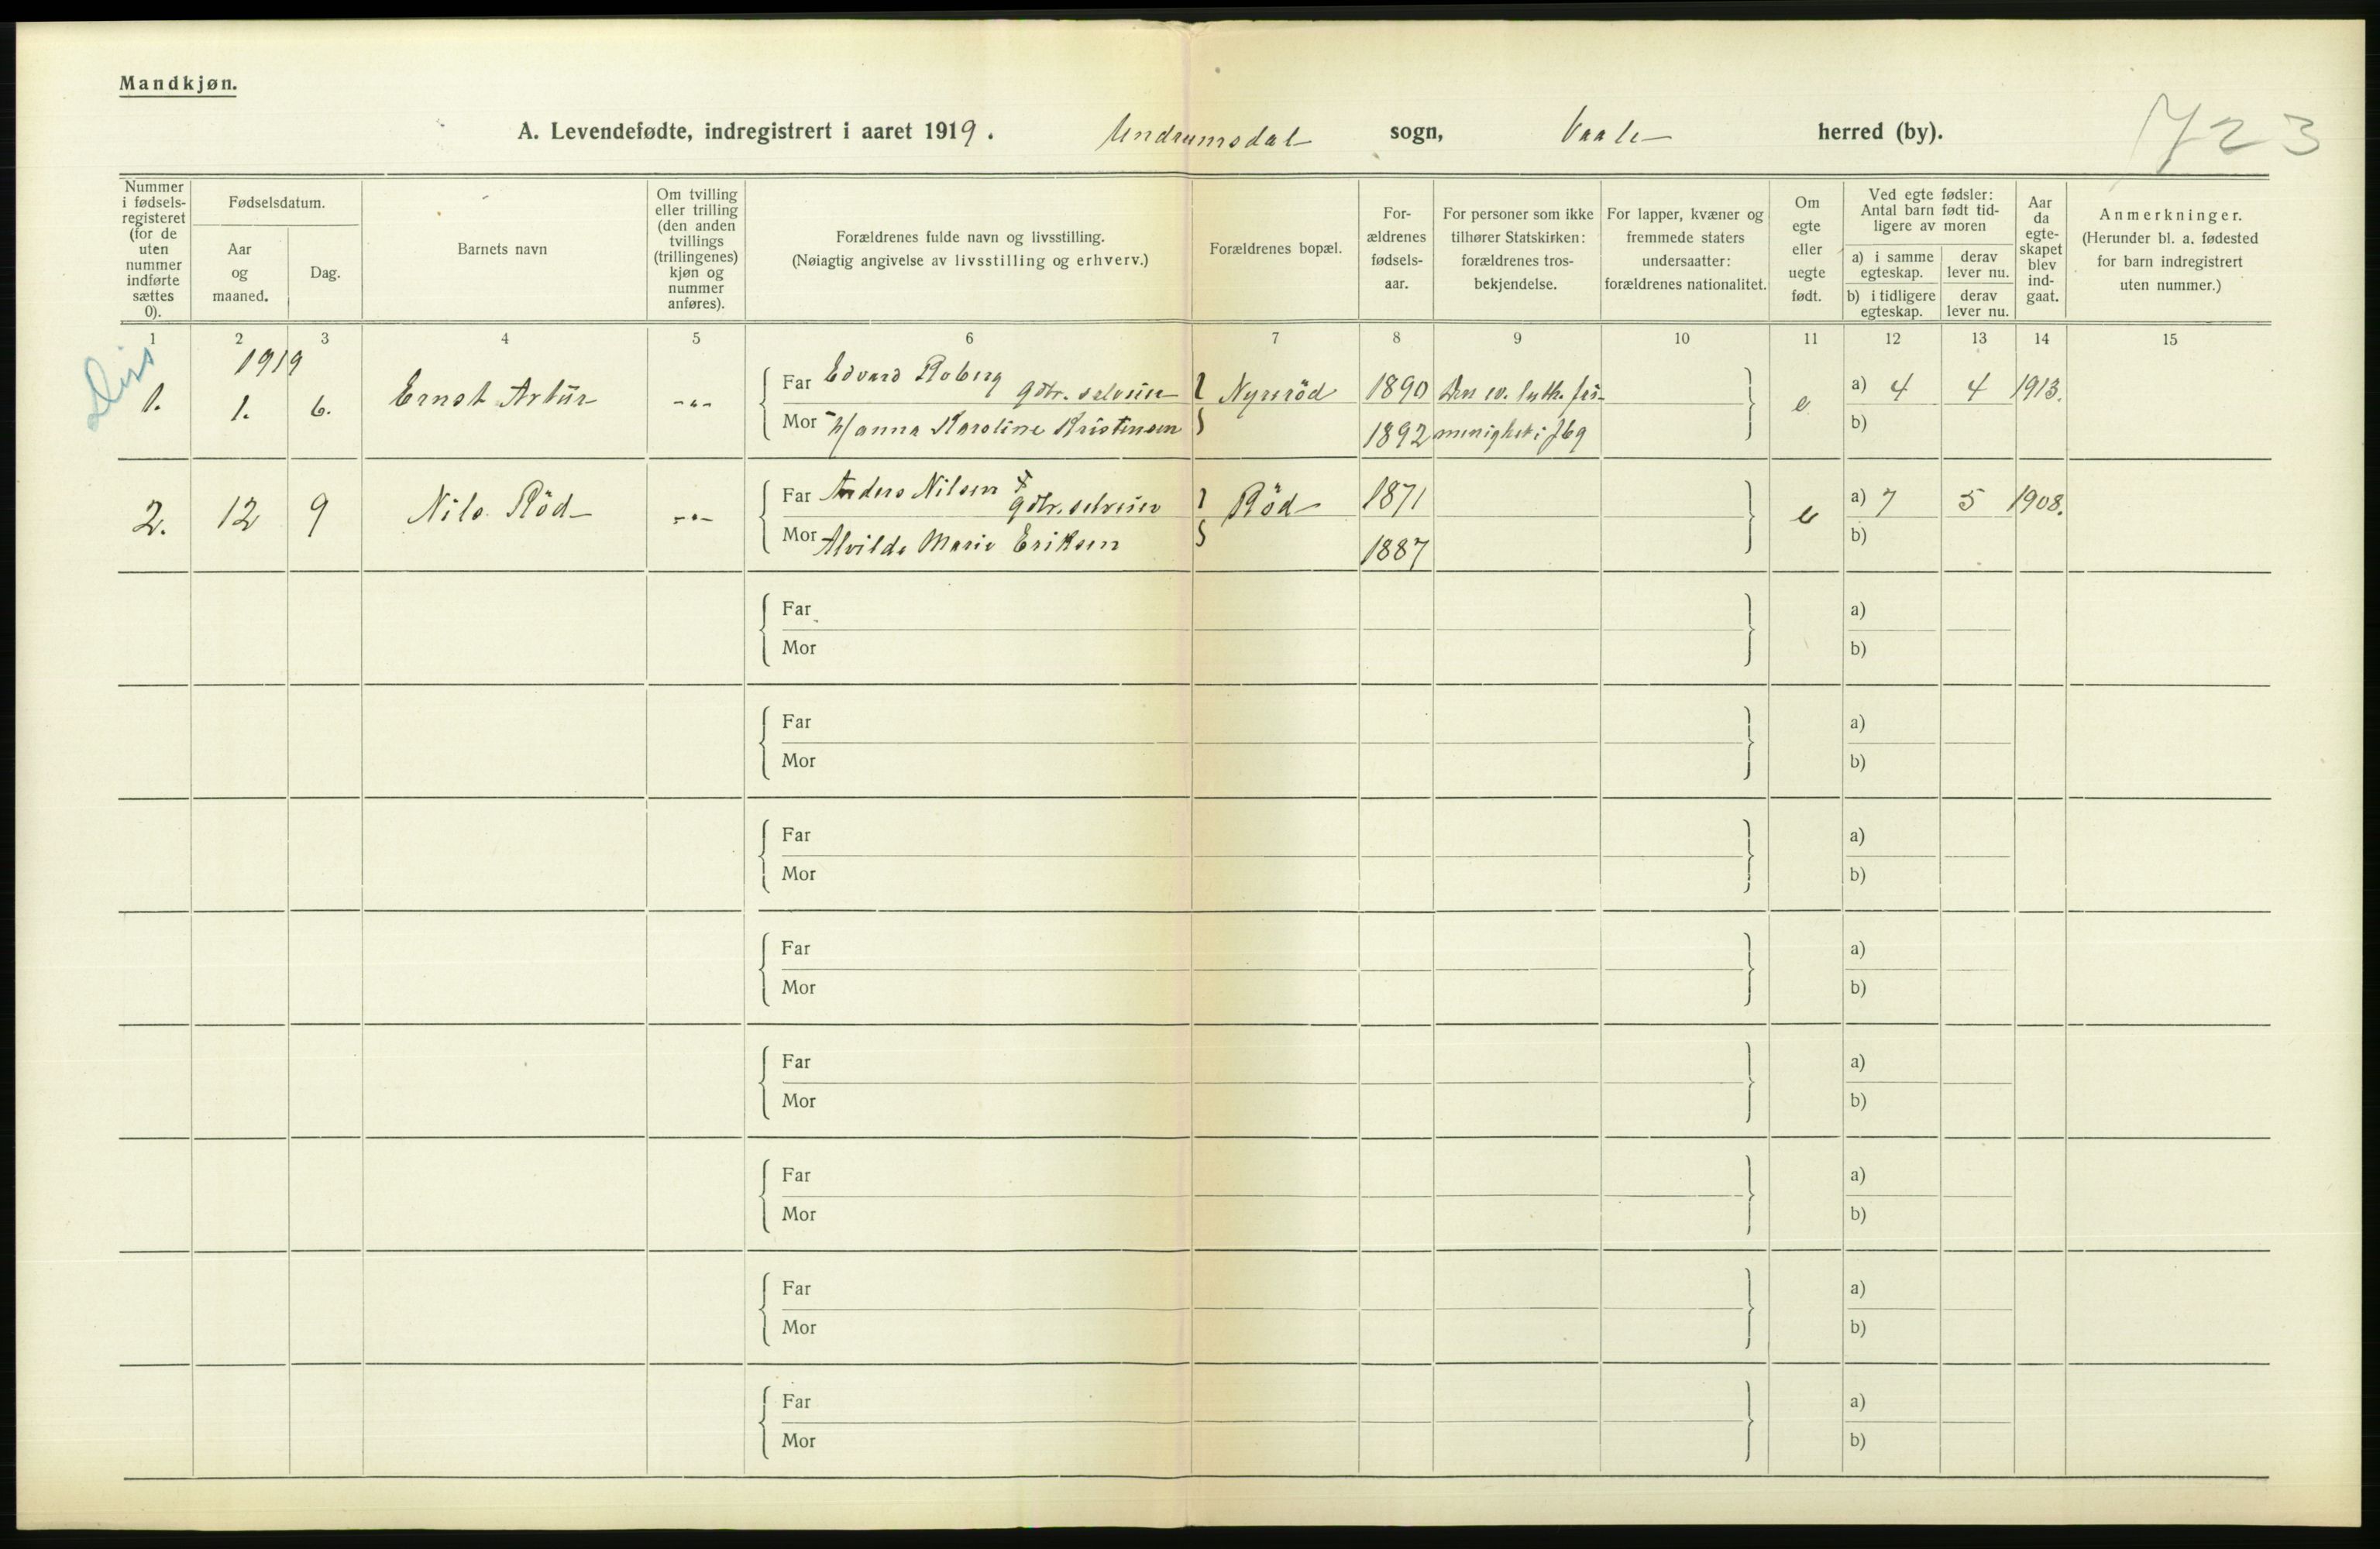 Mandkjøn.
A. Levendefødte, indregistrert i aaret 1919. Undrumsdal sogn, Vaale herred (by).
723
Nummer i fødselsregisteret (for de uten nummer indførte sættes 0).
Fødselsdatum.
Aar og maaned.
Dag.
Barnets navn
Om tvilling eller trilling (den anden tvillings (trillingenes) kjøn og nummer anføres).
Forældrenes fulde navn og livsstilling.
(Nøiagtig angivelse av livsstilling og erhverv.)
Forældrenes bopæl.
Forældrenes fødselsaar.
For personer som ikke tilhører Statskirken: forældrenes trosbekjendelse.
For lapper, kvæner og fremmede staters undersaatter: forældrenes nationalitet.
Om egte eller uegte født.
Ved egte fødsler: Antal barn født tidligere av moren
a) i samme egteskap.
derav lever nu.
b) i tidligere egteskap.
derav lever nu.
Aar da egteskapet blev indgaat.
Anmerkninger.
(Herunder bl. a. fødested for barn indregistrert uten nummer.)
1 2 3 4 5 6 7 8 9 10 11 12 13 14 15
Diss
1919
1. 1. 6. Ernst Artur -"- Far Edvard Roberg gdbr. selveier Nyreröd 1890 Den ev. luth. fri- e a) 4 4 1913.
Mor Hanna Karoline Kristensen 1892 menighet i Jbg b)
2. 12 9 Nils Röd -"- Far Anders Nilsen gdbr. selveier Röd 1871 e a) 7 5 1908.
Mor Alvilde Marie Eriksen 1887 b)
Far a)
Mor b)
Far a)
Mor b)
Far a)
Mor b)
Far a)
Mor b)
Far a)
Mor b)
Far a)
Mor b)
Far a)
Mor b)
Far a)
Mor b)